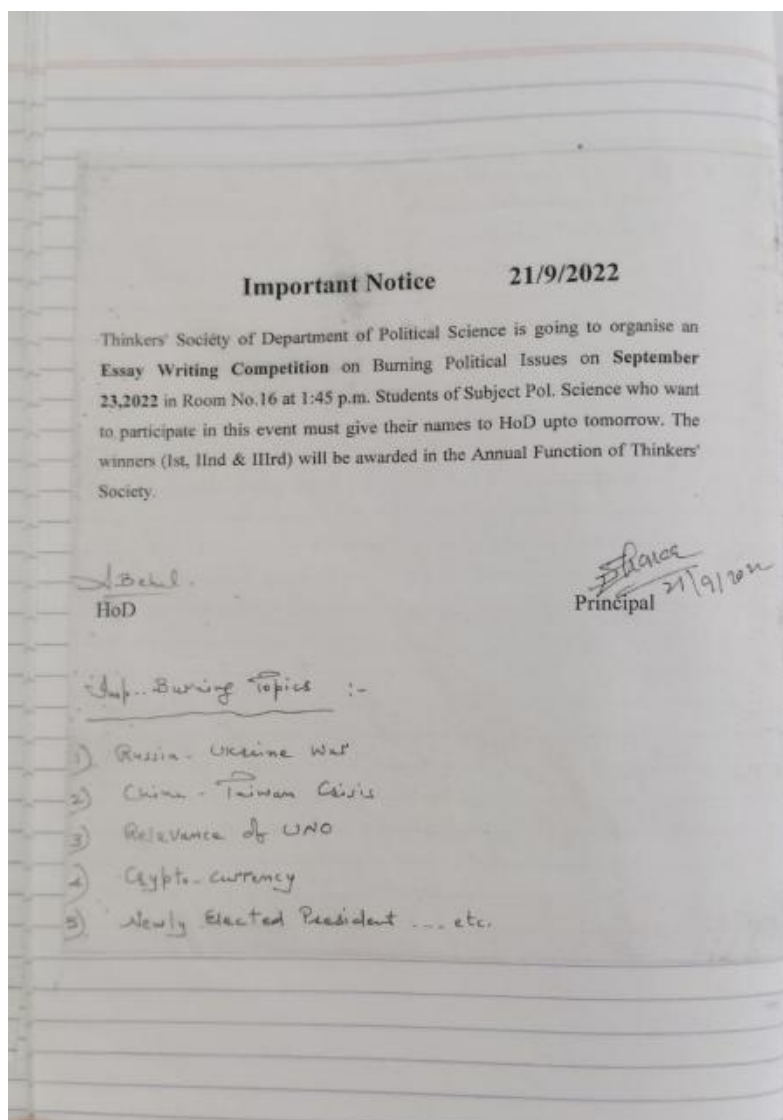 Important Notice 21/9/2022
Thinkers' Society of Department of Political Science is going to organise an
Essay Writing Competition on Burning Political Issues on September
23,2022 in Room No.16 at 1:45 p.m. Students of Subject Pol. Science who want
to participate in this event must give their names to HoD upto tomorrow. The
winners (Ist, IInd & IIIrd) will be awarded in the Annual Function of Thinkers'
Society.
HoD
Principal 21/9/2022
Imp.. Burning Topics :-
1) Russia - Ukraine War
2) China - Taiwan Crisis
3) Relevance of UNO
4) Crypto-currency
5) Newly Elected President .... etc.